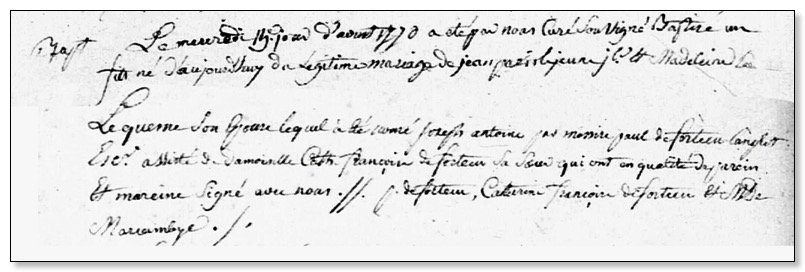 Bapt Le mercredi 15e jour d'avril 1770 a été par nous Curé Soussigné Baptizé un
fils né d'aujourdhuy du Légitime mariage de jean le jeune et Madeleine
Le querne Son Epouse lequel a été nommé Joseph antoine par messire paul deforteu langlet
Escr assisté de damoiselle Cath. françoise deforteu Sa Sœur qui ont en qualité de parein
Et mareine Signé avec nous .//. p. deforteu, Caterine françoise deforteu Et